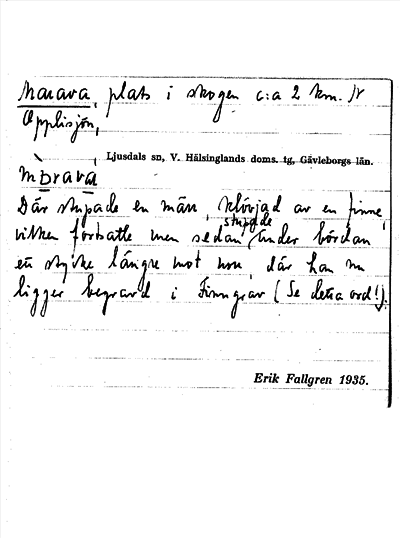 Marava, plats i skogen c:a 2 km. N
Opplisjön,
Ljusdals sn, V. Hälsinglands doms. tg, Gävleborgs län.
mòrava
Där stupade en män, klövjad av en finne,
vilken fortsatte men sedan stupade under bördan
ett stycke längre mot norr, där han nu
ligger begravd i Finngrav (Se detta ord!).
Erik Fallgren 1935.